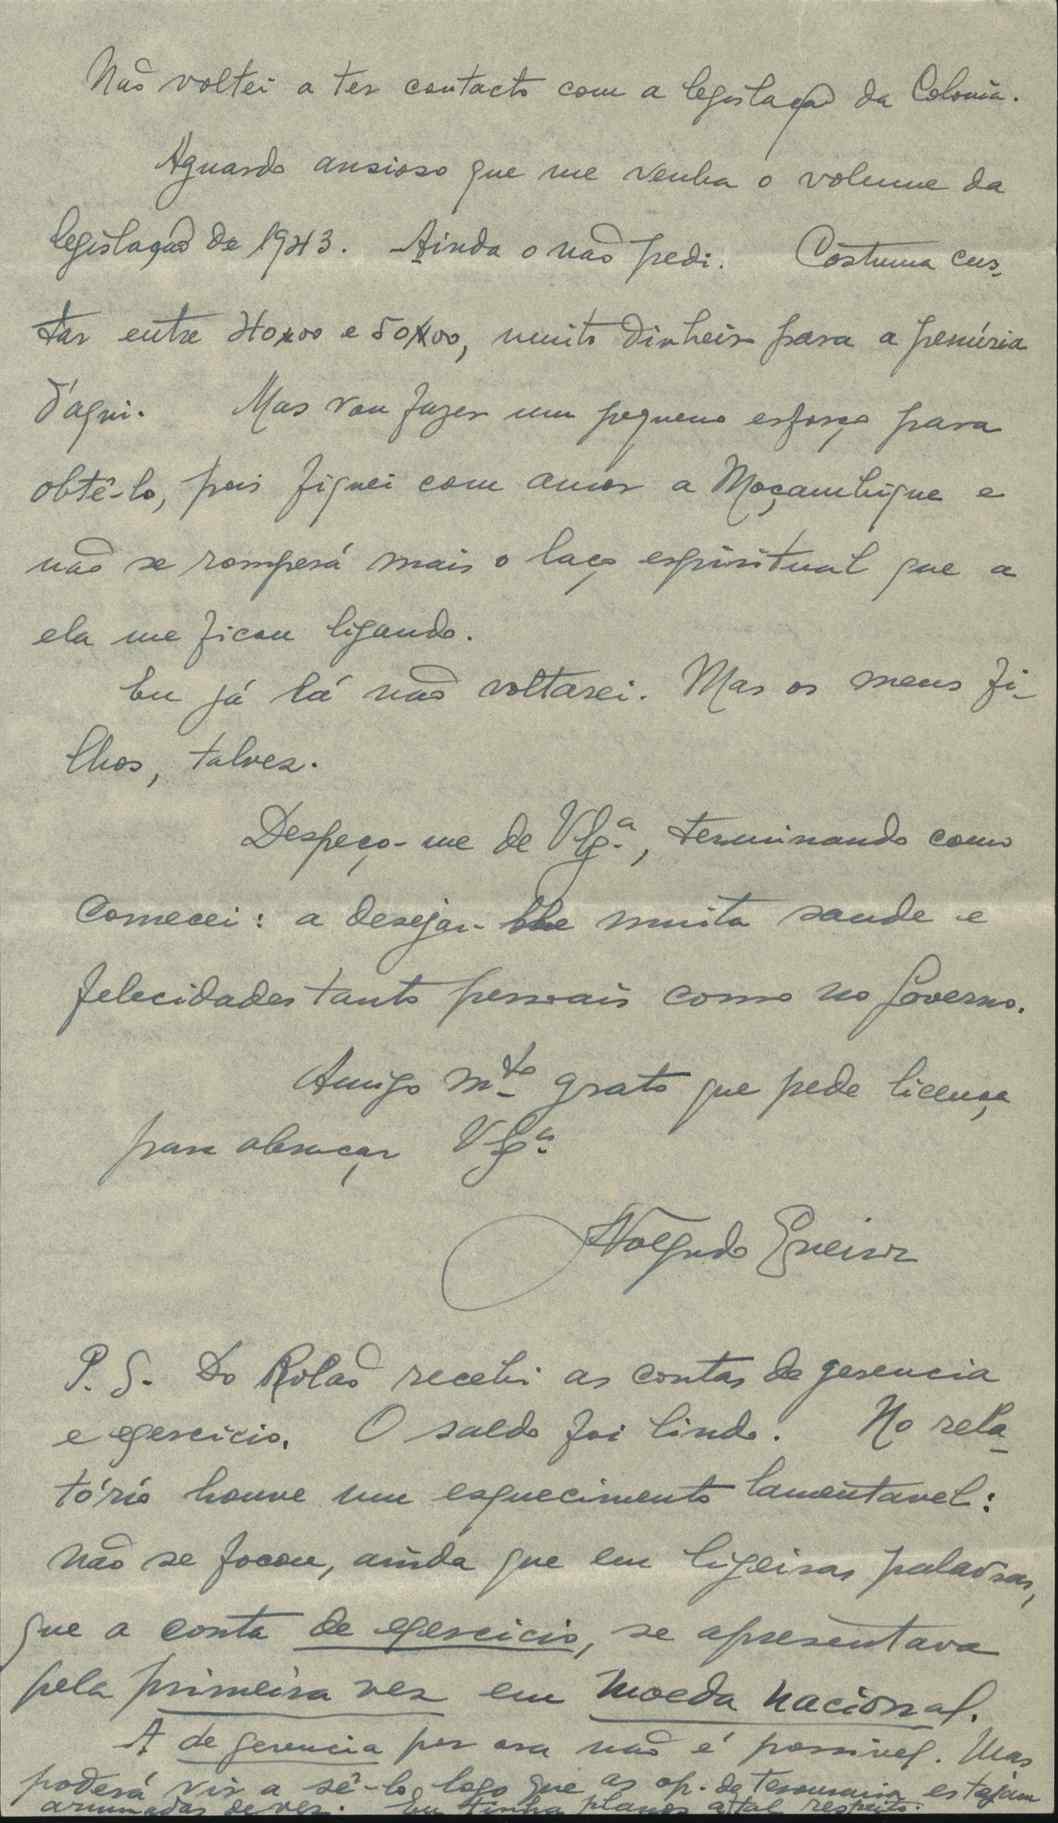 Não voltei a ter contacto com a legislação da Colonia.
Aguardo ansioso que me venha o volume da
legislação de 1943. Ainda o não pedi. Costuma cus-
tar entre 40$00 e 50$00, muito dinheiro para a penúria
d'aqui. Mas vou fazer um pequeno esforço para
obtê-lo, pois fiquei com amor a Moçambique e
não se romperá mais o laço espiritual que a
ela me ficou ligando.
Eu já lá não voltarei. Mas os meus fi-
lhos, talvez.
Despeço-me de V. Ex.ª, terminando como
comecei: a desejar-lhe muita saude e
felecidades tanto pessoais como no Governo.
Amigo m.to grato que pede licença
para abraçar V. Ex.ª
P. S. Do Rolão recebi as contas de gerencia
e exercicio. O saldo foi lindo. No rela-
tório houve um esquecimento lamentavel:
não se focou, ainda que em ligeiras palavras,
que a conta de exercicio, se apresentava
pela primeira vez em moeda nacional.
A de gerencia por ora não é possivel. Mas
poderá vir a sê-lo logo que as op. de tesouraria estejam
arrumadas de vez. Eu tinha planos a tal respeito.